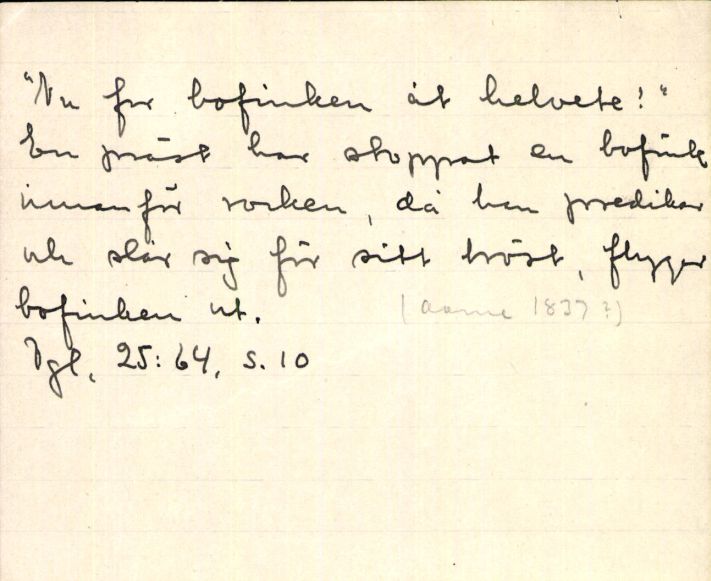 "Nu for bofinken åt helvete!"
En präst har stoppat en bofink
innanför rocken, då han predikar
och slår sig för sitt bröst, flyger
bofinken ut. (Aarne 1837?)
Vgl, 25:64, s. 10